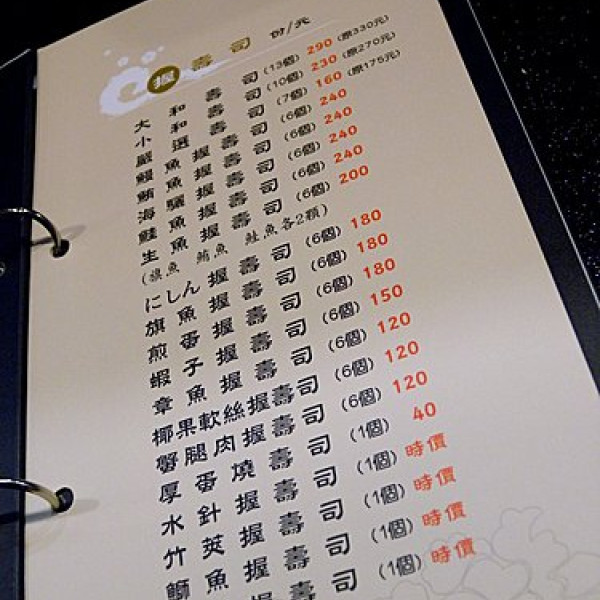 握壽司 份/元
大和壽司(13個) 290 (原330元)
小和壽司(10個) 230 (原270元)
嚴選壽司(7個) 160 (原175元)
鰻魚握壽司(6個) 240
鮪魚握壽司(6個) 240
海鱺握壽司(6個) 240
鮭魚握壽司(6個) 240
生魚握壽司(6個) 200
(旗魚 鮪魚 鮭魚各2顆)
にしん握壽司(6個) 180
旗魚握壽司(6個) 180
煎蛋握壽司(6個) 180
蝦子握壽司(6個) 150
章魚握壽司(6個) 120
椰果軟絲握壽司(6個) 120
蟹腿肉握壽司(6個) 120
厚蛋燒壽司(1個) 40
水針握壽司(1個) 時價
竹莢握壽司(1個) 時價
鰤魚握壽司(1個) 時價
握壽司(1個) 時價